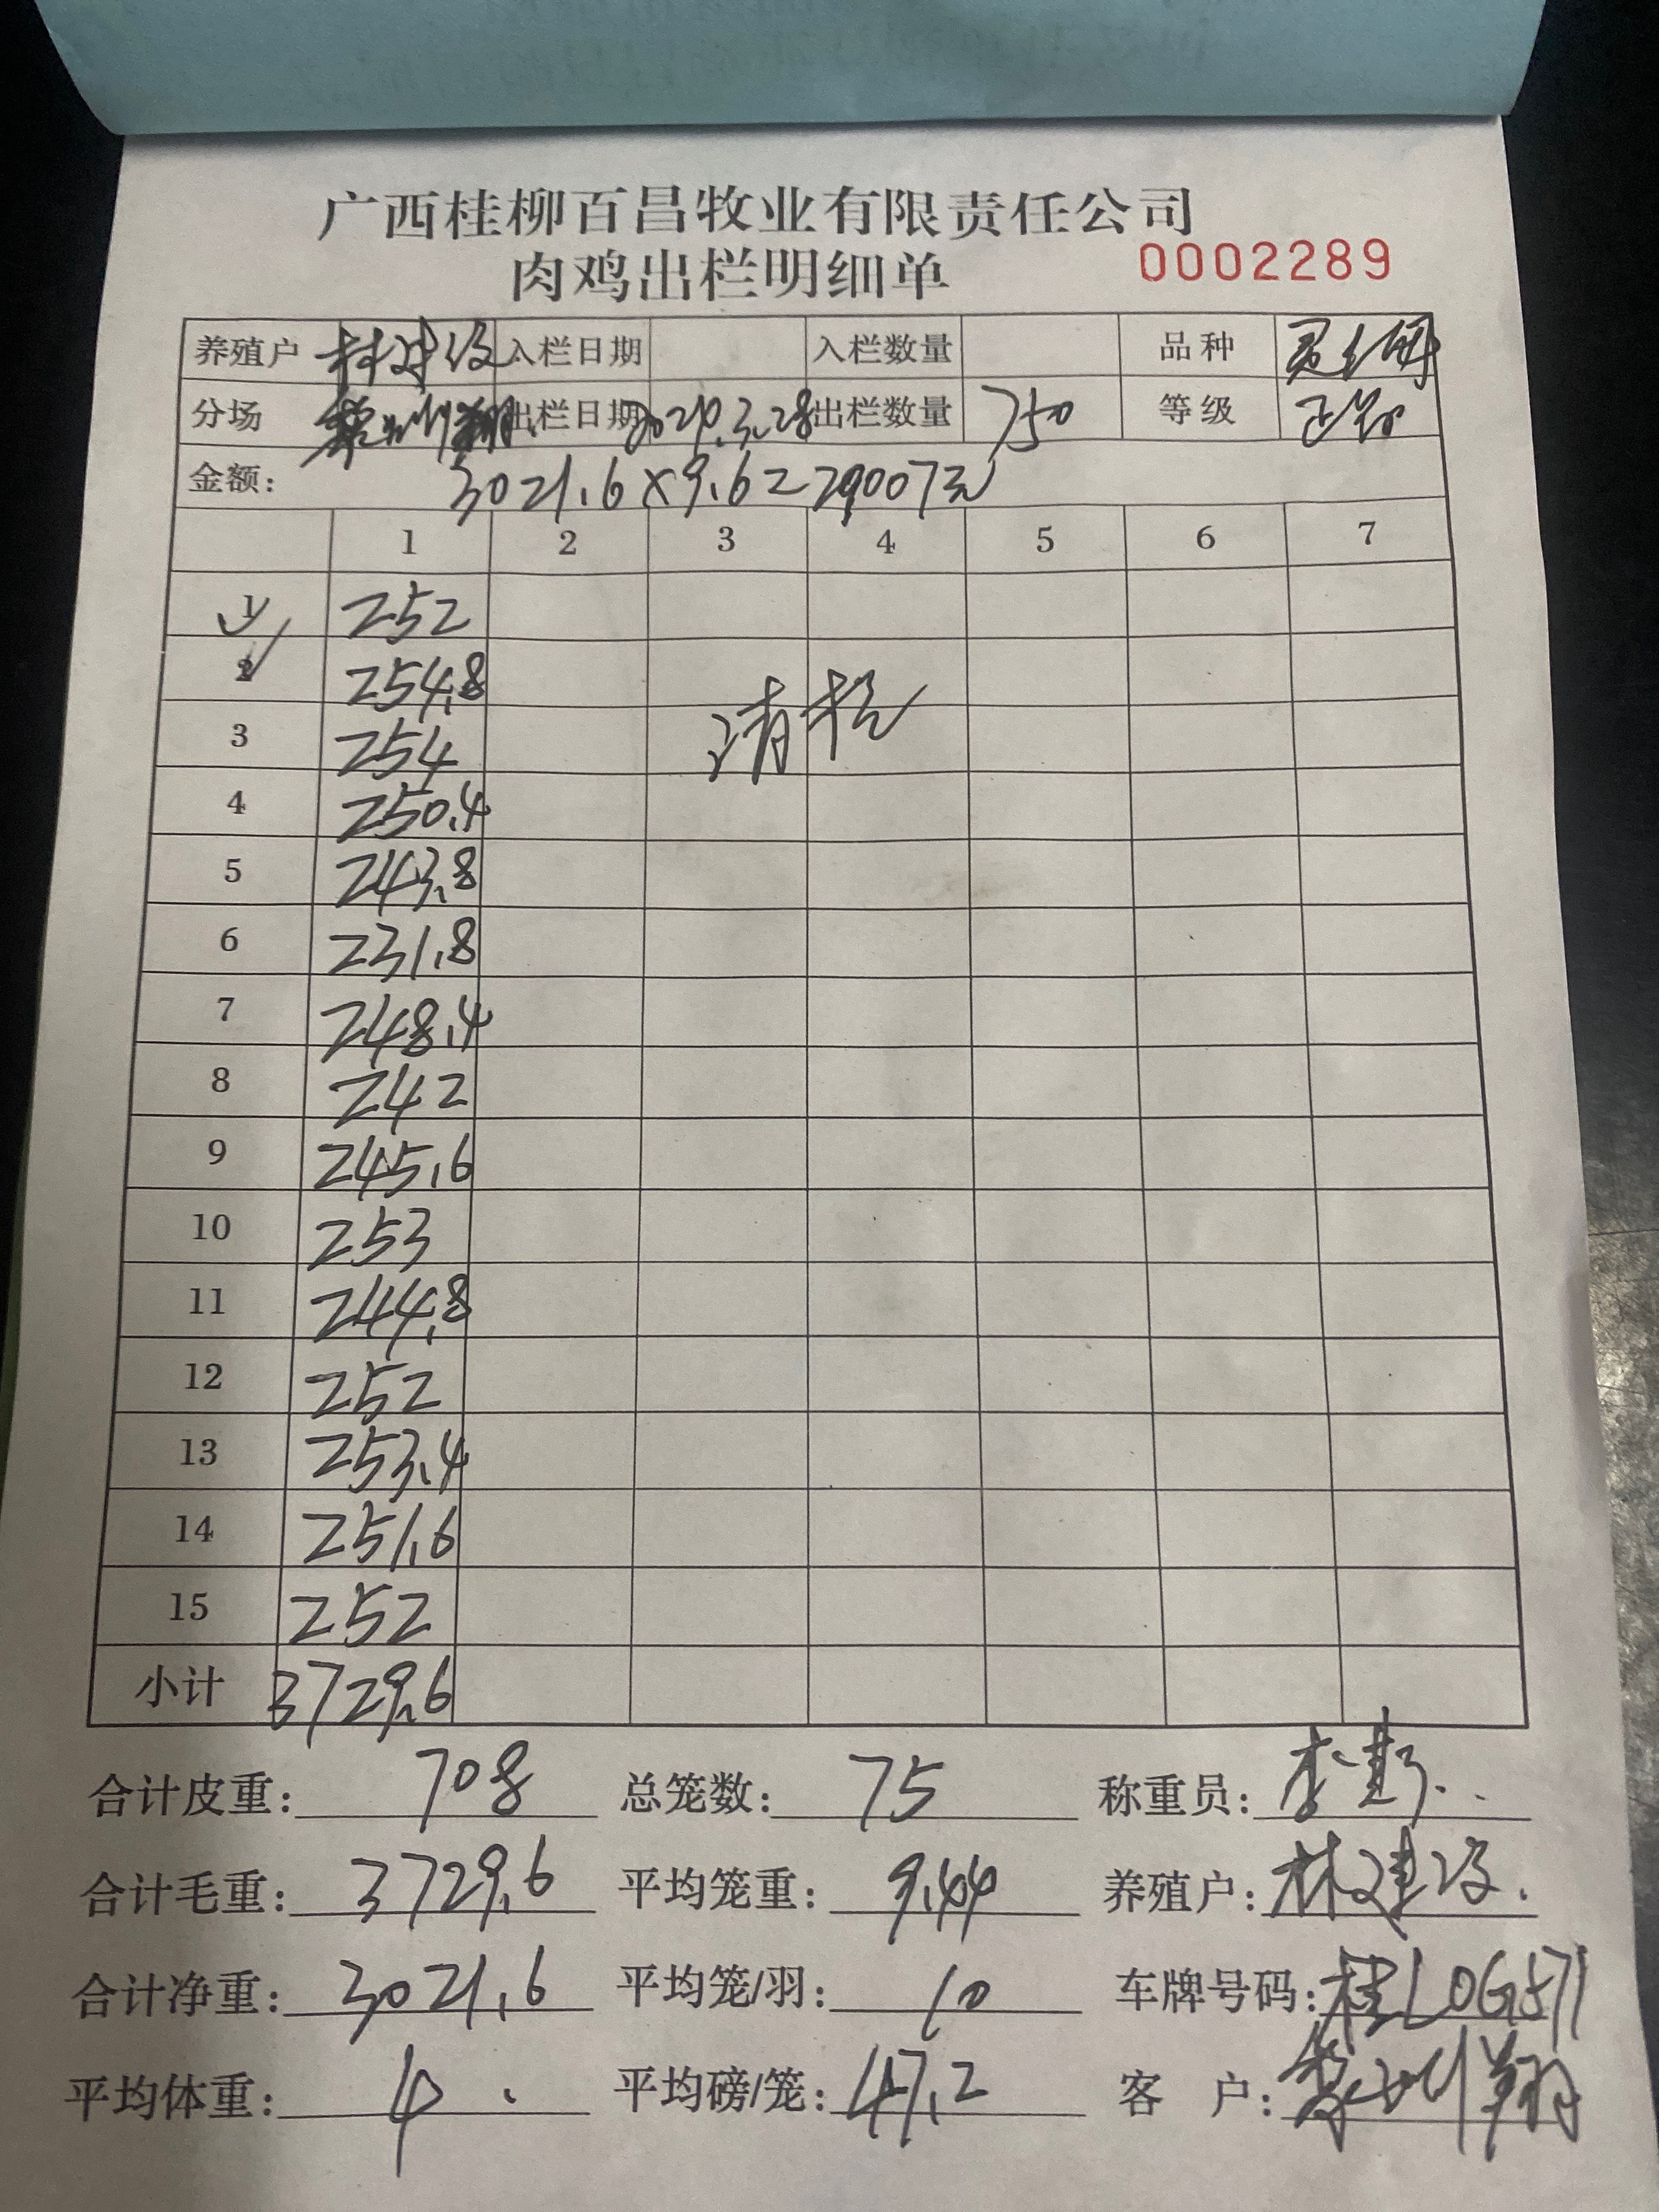 广西桂柳百昌牧业有限责任公司
肉鸡出栏明细单 0002289
养殖户 林建设 入栏日期 入栏数量 品种
分场 出栏日期 3.28 出栏数量 750 等级
金额: 3021.6×9.6=29007元
1 2 3 4 5 6 7
1 252
2 254.8
3 254
4 250.4
5 243.8
6 231.8
7 248.4
8 242
9 245.6
10 253
11 244.8
12 252
13 253.4
14 251.6
15 252
小计 3729.6
合计皮重: 708 总笼数: 75 称重员: 李
合计毛重: 3729.6 平均笼重: 9.44 养殖户: 林建设.
合计净重: 3021.6 平均笼/羽: 10 车牌号码: 桂L0G571
平均体重: 4. 平均磅/笼: 47.2 客 户: 翔